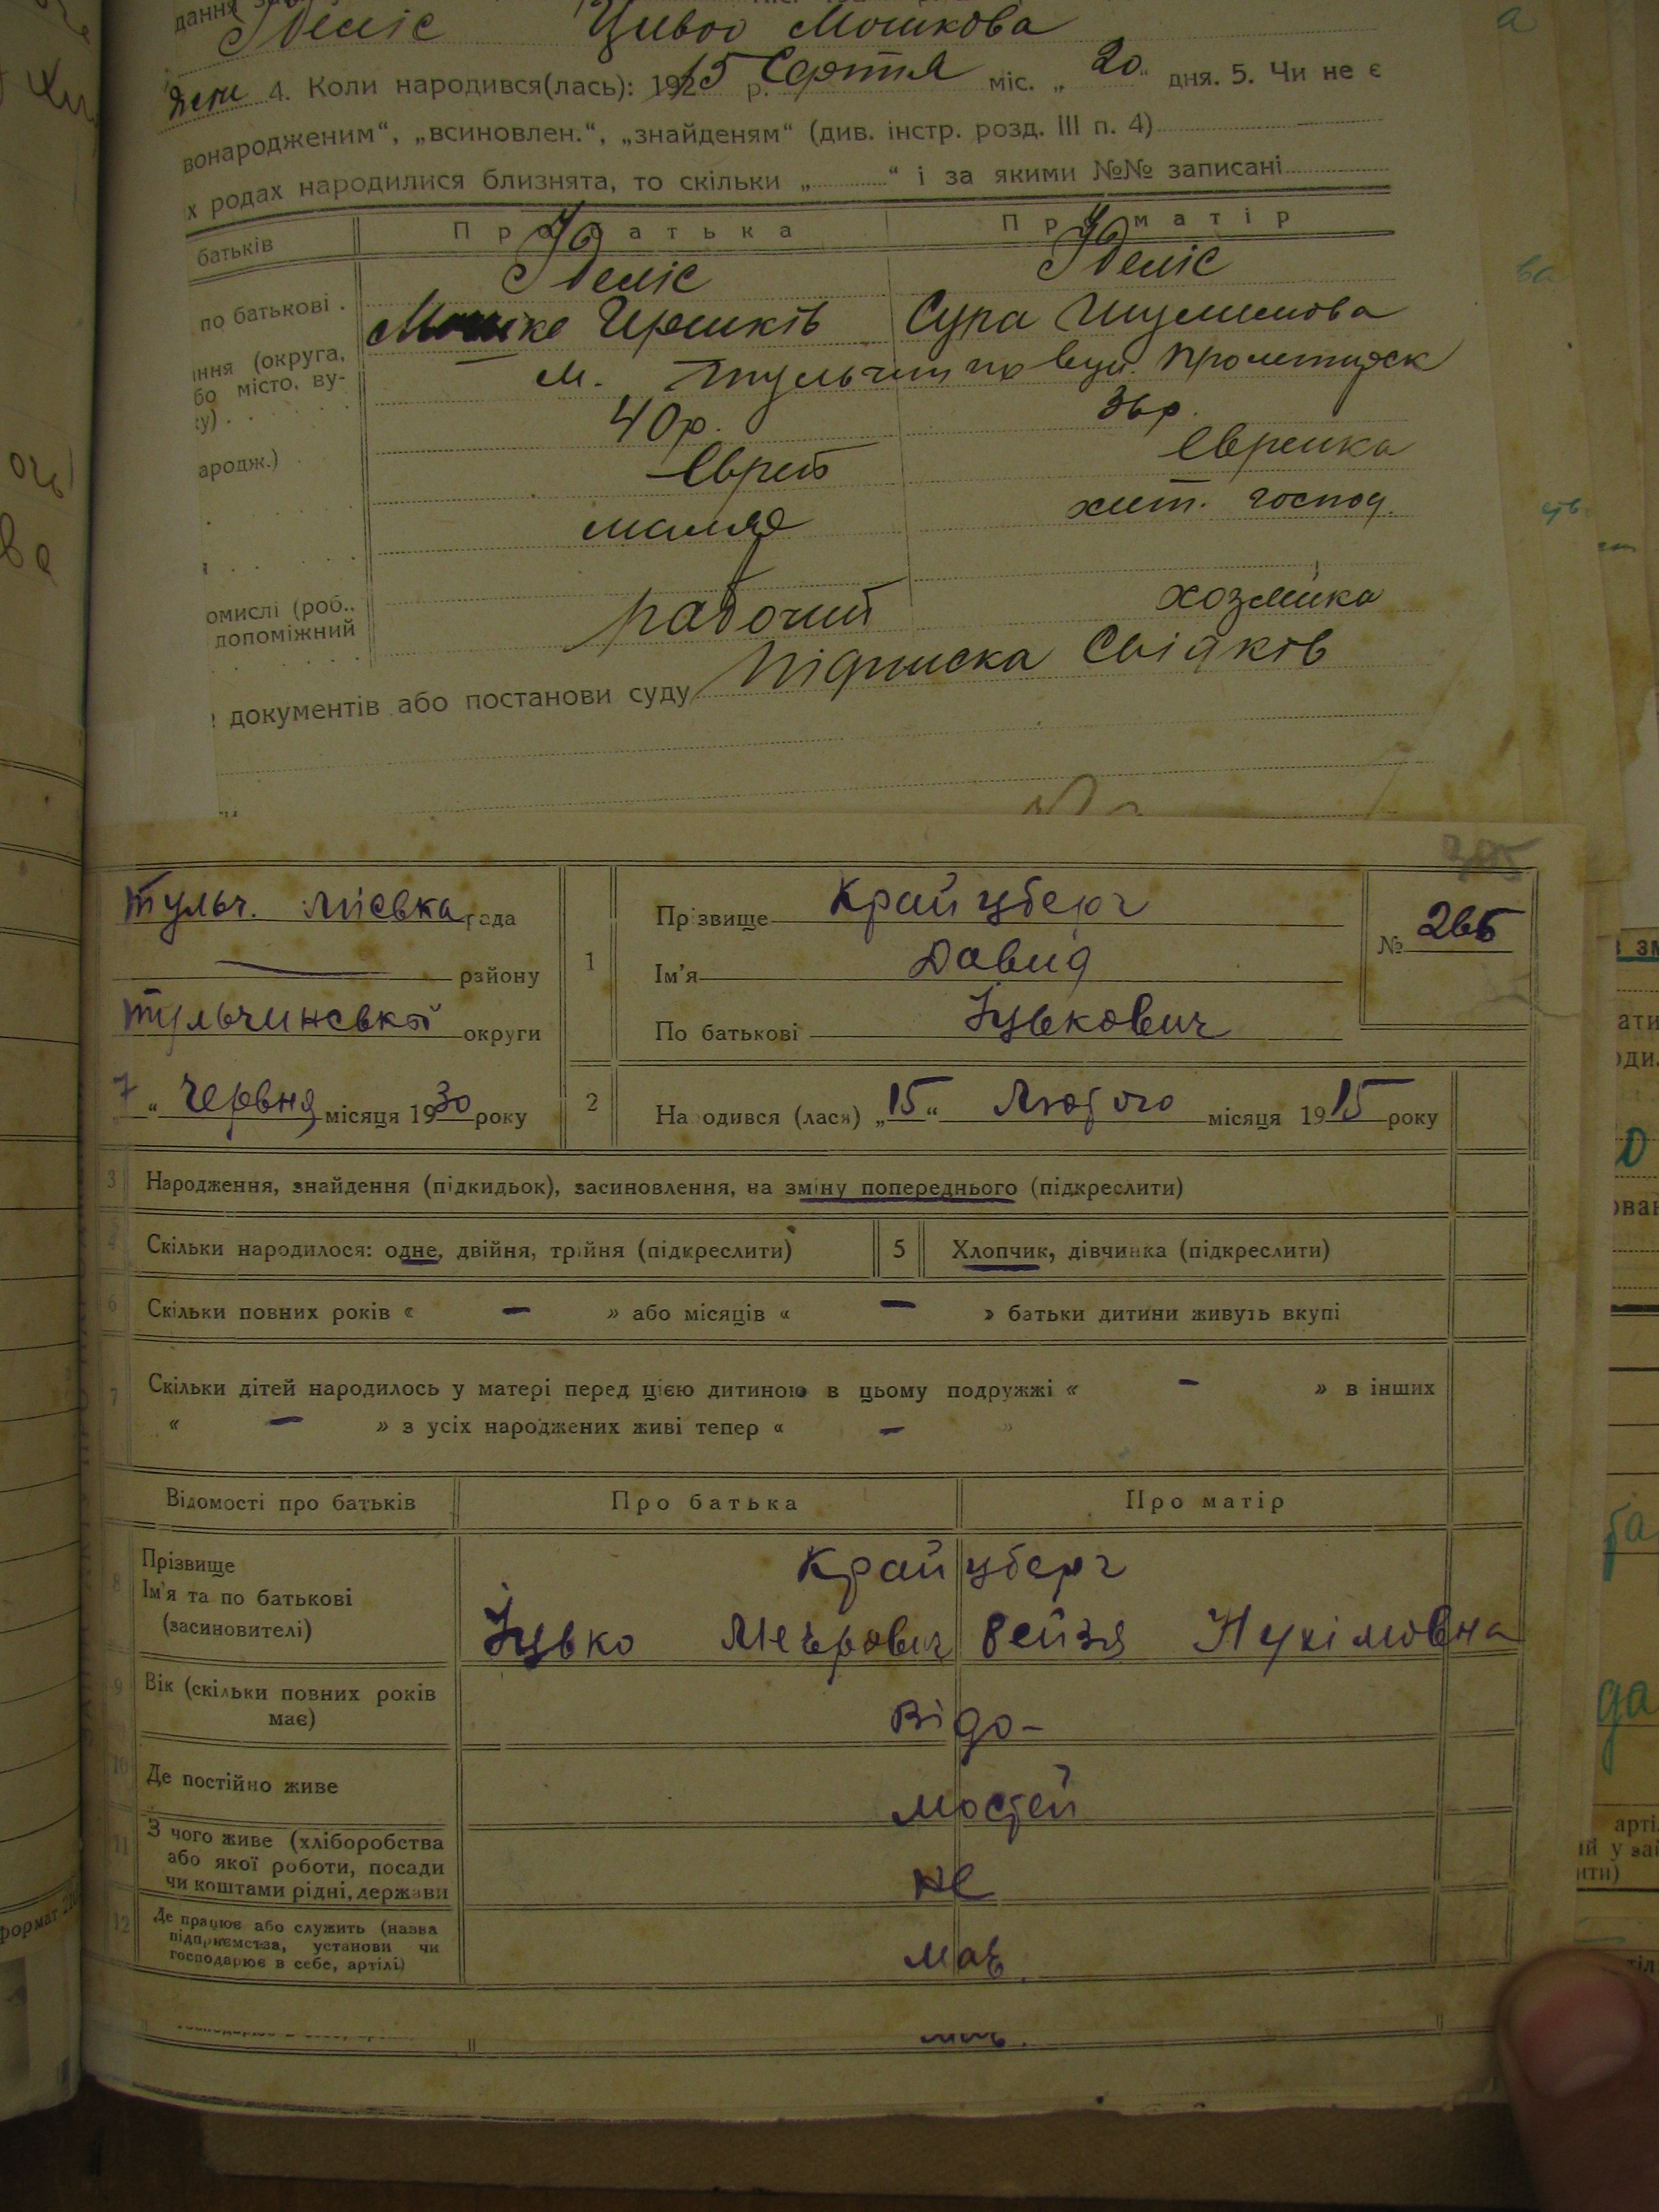 дання
Цивоо Мошкова
4. Коли народився(лась): 1915 р. Серпня міс. „20“ дня. 5. Чи не є
вонародженим“, „всиновлен.“, „знайденям“ (див. інстр. розд. III п. 4)
х родах народилися близнята, то скільки „ “ і за якими №№ записані
батьків Про батька Про матір
по батькові . Мошко Гершків Сура Шулимова
ння (округа,
бо місто, ву- м. Тульчин по вул.
у) . 40 р. 36 р.
ародж.) Еврей Еврейка
маляр хат. господ.
омислі (роб.. рабочий хозяйка
допоміжний
документів або постанови суду Підписка Свідків
Тульч. рада
району
Тульчинської округи
7 “ Червня місяця 1930 року
1
Прізвище Крайцберг
Ім'я Давид
По батькові Іцькович
№ 266
2 Народився (лася) „15“ Лютого місяця 1915 року
3 Народження, знайдення (підкидьок), засиновлення, на зміну попереднього (підкреслити)
4 Скільки народилося: одне, двійня, трійня (підкреслити) 5 Хлопчик, дівчинка (підкреслити)
6 Скільки повних років « — » або місяців « — » батьки дитини живуть вкупі
7 Скільки дітей народилось у матері перед цією дитиною в цьому подружжі « — » в інших
« — » з усіх народжених живі тепер « — »
Відомості про батьків Про батька Про матір
8 Прізвище Крайцберг
Ім'я та по батькові
(засиновителі) Іцько Меєрович Рейзя Нухімовна
9 Вік (скільки повних років
має) Відо-
10 Де постійно живе мостей
11 З чого живе (хліборобства
або якої роботи, посади
чи коштами рідні, держави не
12 Де працює або служить (назва
підприємства, установи чи
господарює в себе, артілі) має.
формат